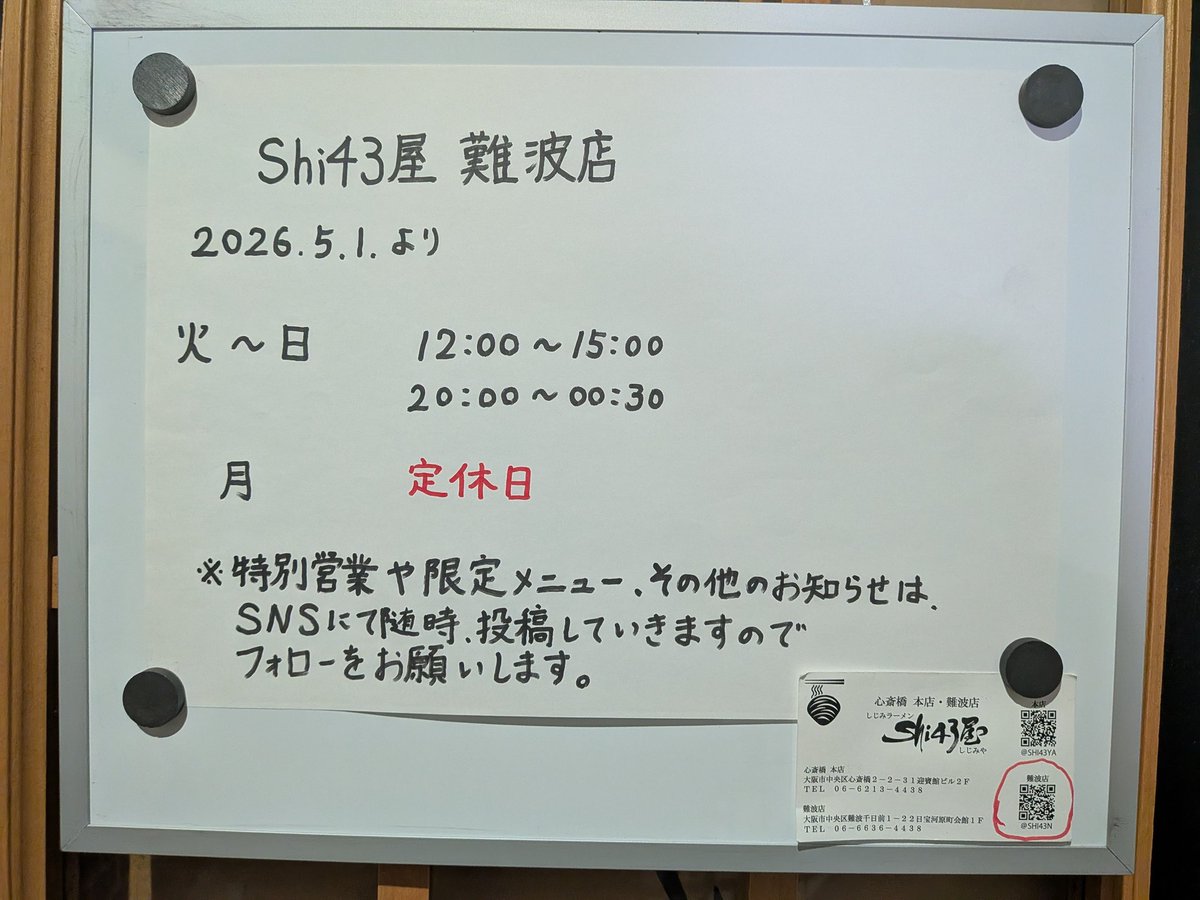 Shi43屋 難波店
2026.5.1.より
火～日 12:00～15:00
20:00～00:30
月 定休日
※特別営業や限定メニュー、その他のお知らせは、
SNSにて随時、投稿していきますので
フォローをお願いします。
心斎橋 本店・難波店
しじみラーメン
Shi43屋
しじみや
本店
@SHI43YA
心斎橋 本店
大阪市中央区心斎橋2-2-31迎賓館ビル2F
TEL 06-6213-4438
難波店
@SHI43N
難波店
大阪市中央区難波千日前1-22日宝河原町会館1F
TEL 06-6636-4438